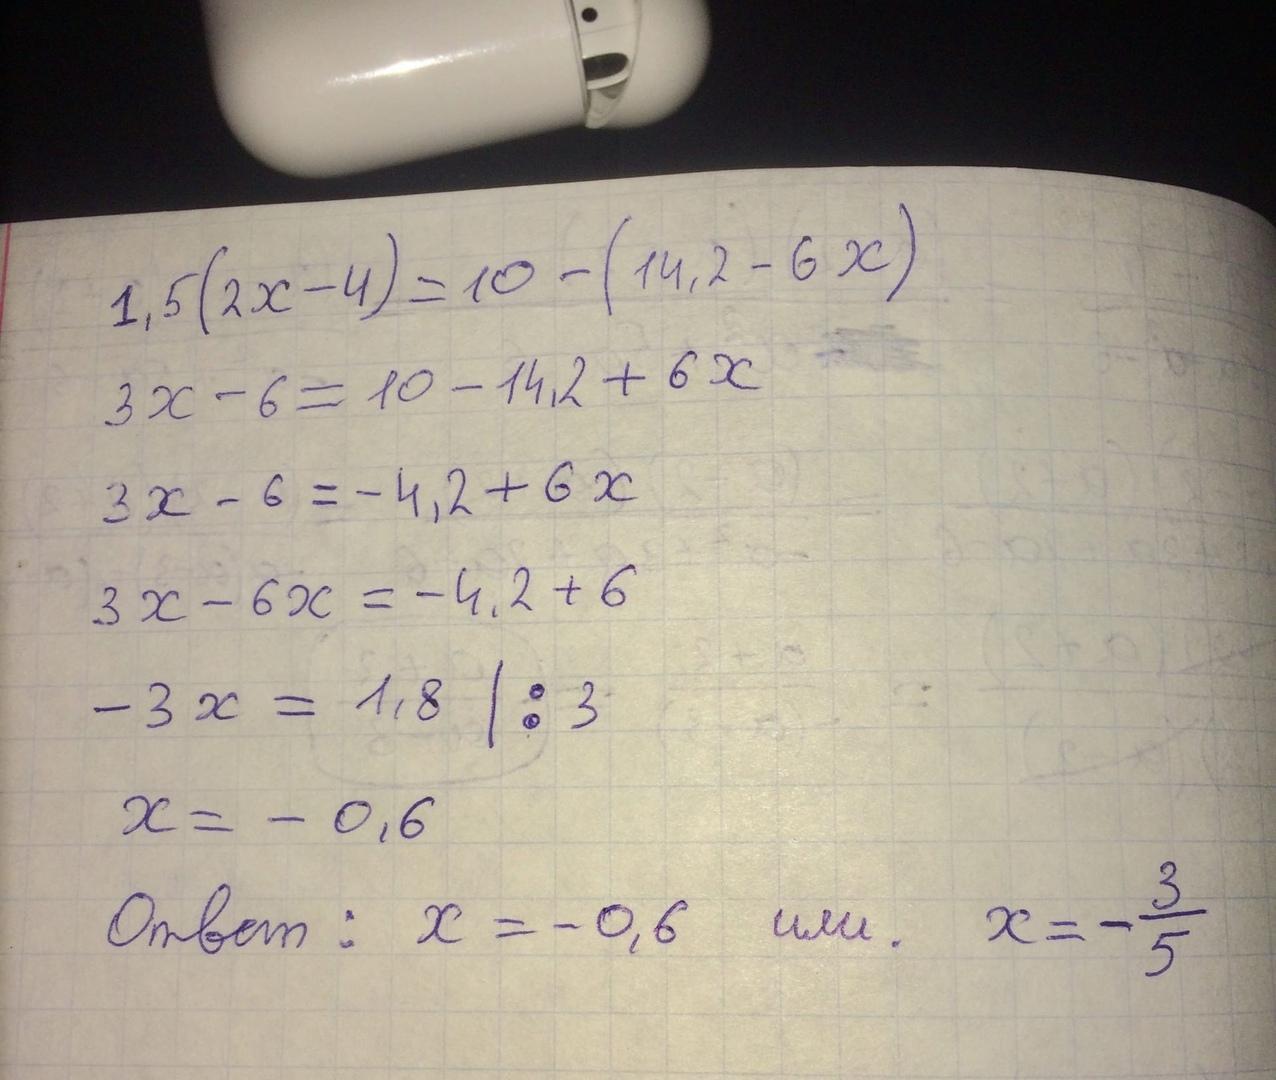 1,5(2x-4)=10-(14,2-6x)
3x-6=10-14,2+6x
3x-6=-4,2+6x
3x-6x=-4,2+6
-3x=1,8 |:3
x=-0,6
Ответ: x=-0,6 или. x=-3/5